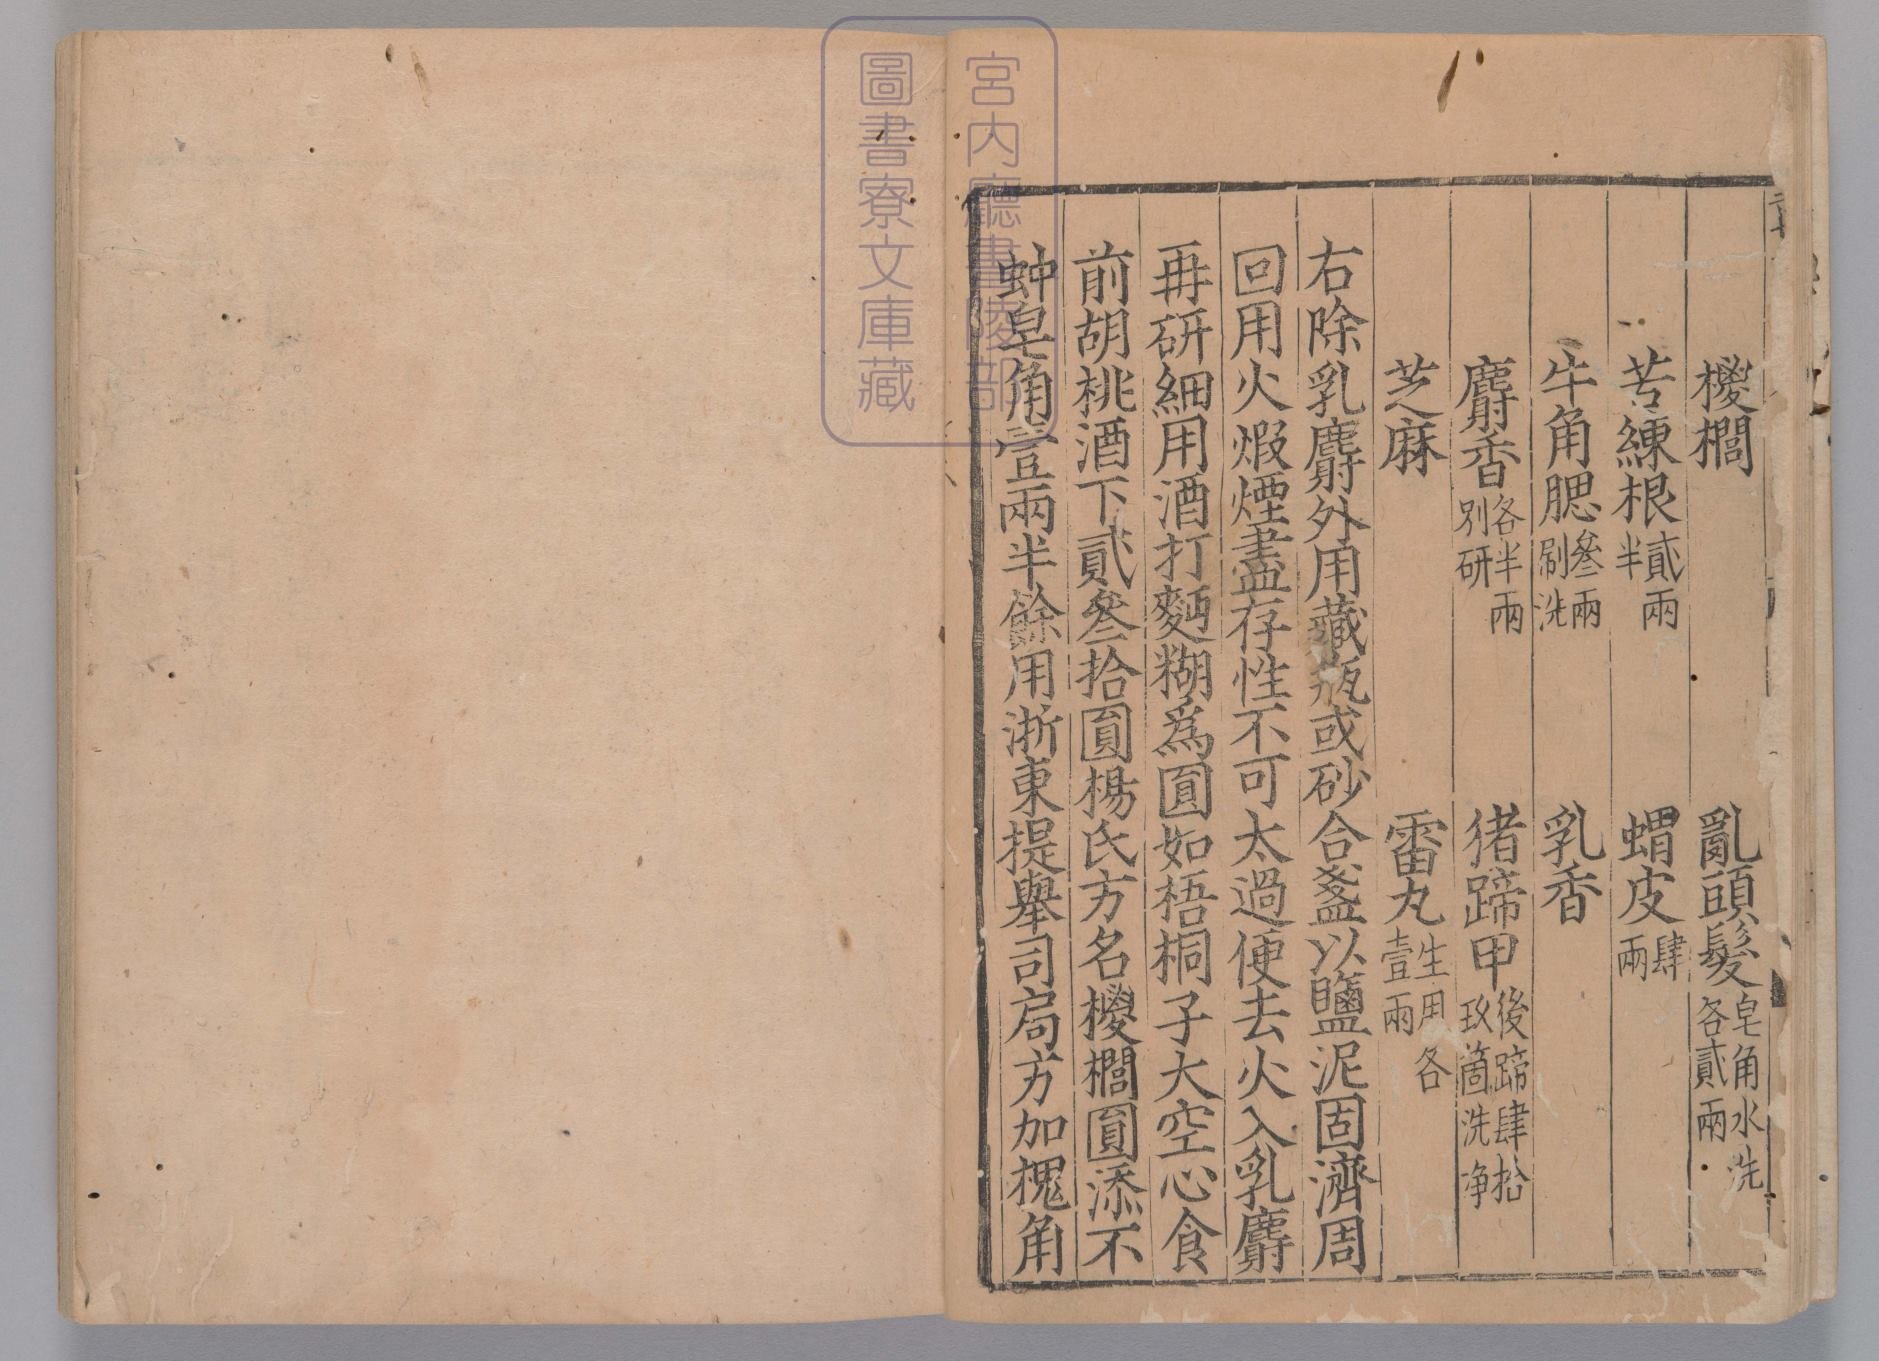 椶櫚　亂頭髮皂角水洗各貳兩
苦練根貳兩半　蝟皮肆兩
牛角腮叄兩刷洗　乳香
麝香各半兩別研　猪蹄甲後蹄肆拾玖箇洗净
芝麻　雷丸生用各壹兩
右除乳麝外用藏瓶或砂合盞以鹽泥固濟周
回用火煅煙盡存性不可太過便去火入乳麝
再研細用酒打麪糊爲圓如梧桐子大空心食
前胡桃酒下貳叄拾圓楊氏方名椶櫚圓添不
蚛皂角壹兩半餘用浙東提舉司局方加槐角
宮內廳書陵部
圖書寮文庫藏